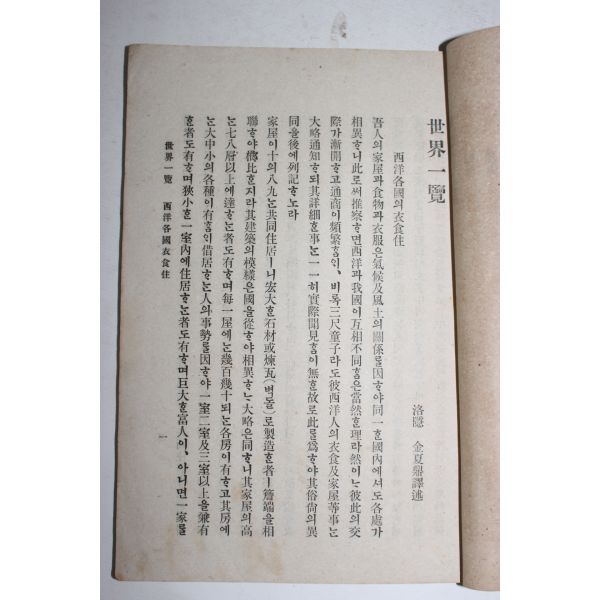 世界一覽
洛隱 金夏鼎譯述
西洋各國의衣食住
吾人의家屋과食物과衣服은氣候及風土의關係를因ᄒᆞ야同一ᄒᆞᆫ國內에셔도各處가
相異ᄒᆞ니此로써推察ᄒᆞ면西洋과我國이互相不同ᄒᆞᆷ은當然ᄒᆞᆫ理라然이ᄂᆞ彼此의交
際가漸開ᄒᆞ고通商이頻繁ᄒᆞᆷ이、비록三尺童子라도彼西洋人의衣食及家屋等事ᄂᆞᆫ
大略通知ᄒᆞ되其詳細ᄒᆞᆫ事ᄂᆞᆫ一一히實際聞見ᄒᆞᆷ이無ᄒᆞᆫ故로此를爲ᄒᆞ야其俗尙의異
同을後에列記ᄒᆞ노라
家屋이十의八九ᄂᆞᆫ共同住居ㅣ니宏大ᄒᆞᆫ石材或煉瓦(벽돌)로製造ᄒᆞᆫ者ㅣ簷端을相
聯ᄒᆞ야櫛比ᄒᆞᆫ지라其建築의模樣은國을從ᄒᆞ야相異ᄒᆞᄂᆞ大略은同ᄒᆞ니其家屋의高
ᄂᆞᆫ七八層以上에達ᄒᆞᄂᆞᆫ者도有ᄒᆞ며每一屋에ᄂᆞᆫ幾百幾十되ᄂᆞᆫ各房이有ᄒᆞ고其房에
ᄂᆞᆫ大中小의各種이有ᄒᆞᆷ이借居ᄒᆞᄂᆞᆫ人의事勢를因ᄒᆞ야一室二室及三室以上을兼有
ᄒᆞᆫ者도有ᄒᆞ며狹小ᄒᆞᆫ一室內에住居ᄒᆞᄂᆞᆫ者도有ᄒᆞ며巨大ᄒᆞᆫ富人이、아니면一家를
世界一覽 西洋各國衣食住
一